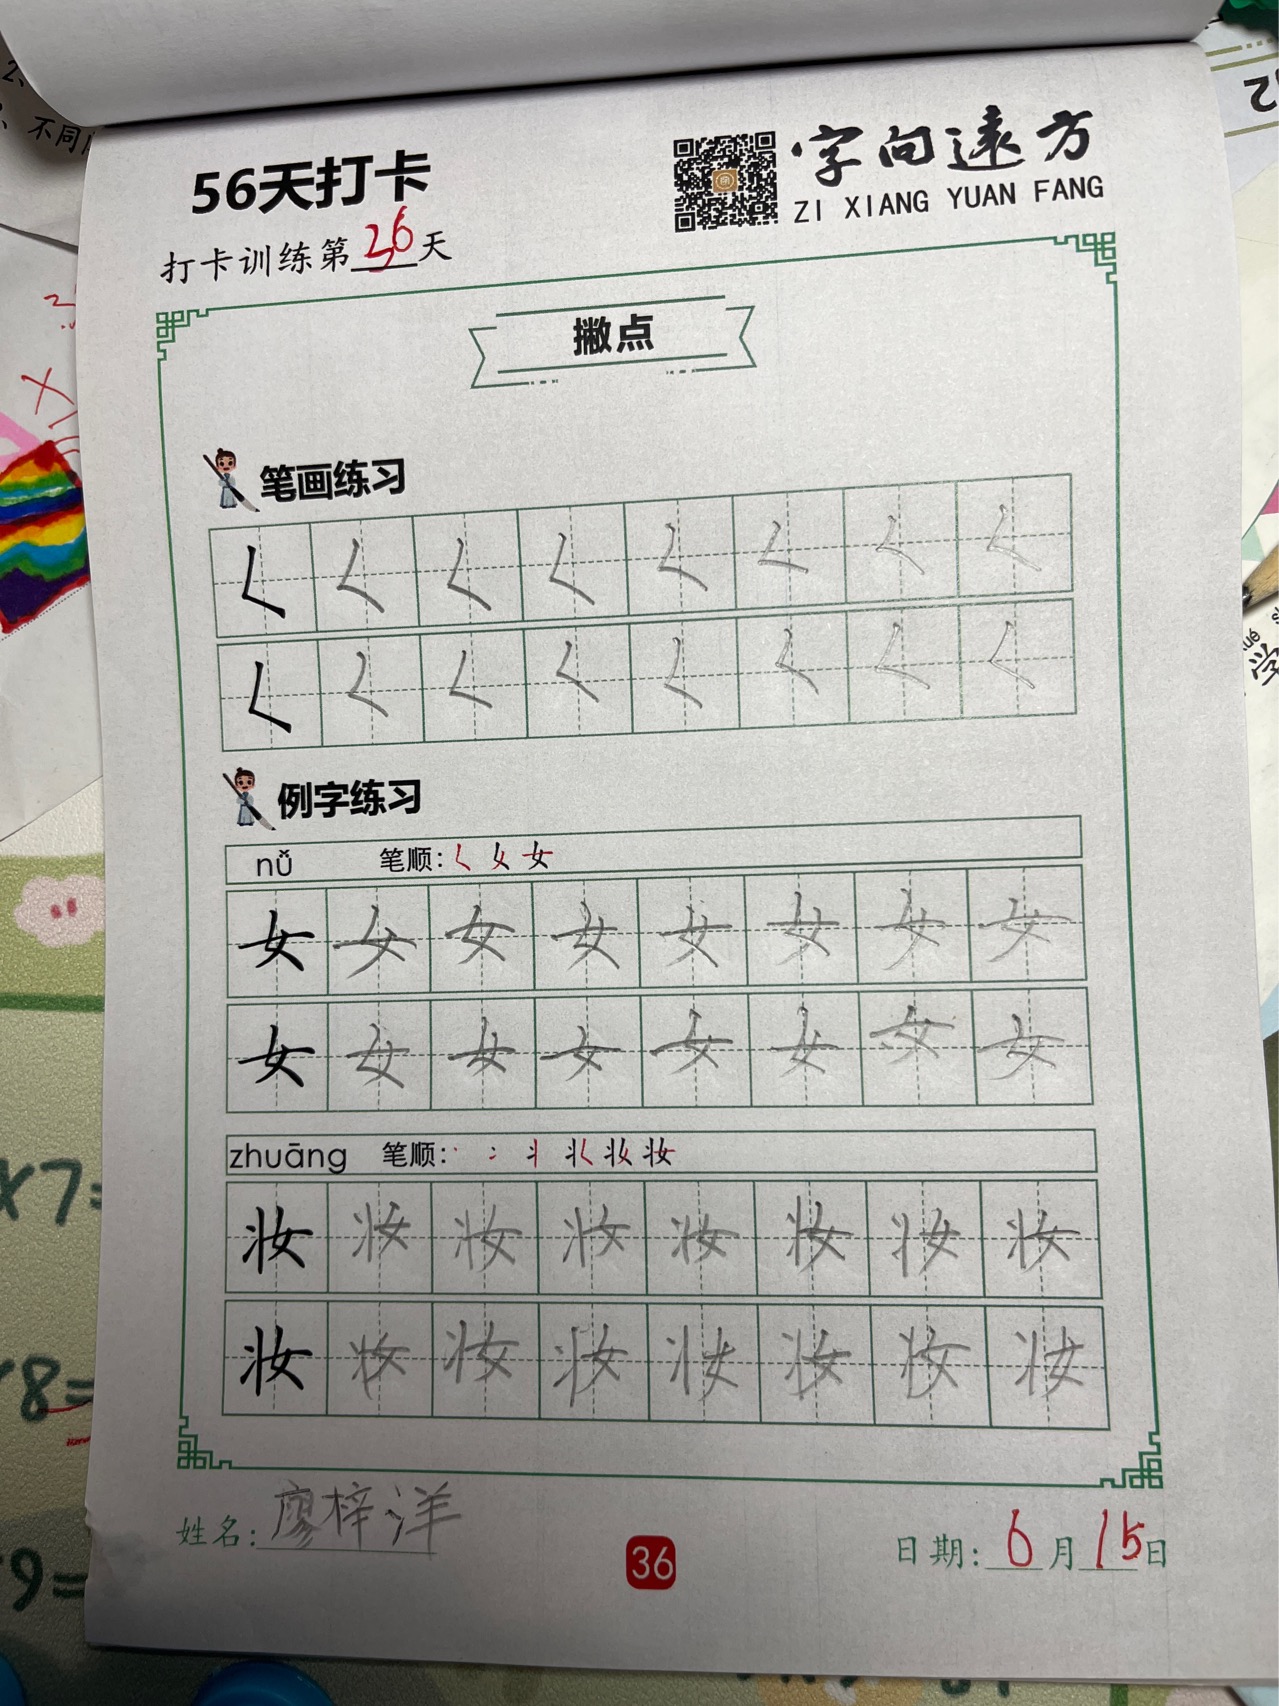 56天打卡
字向遠方
ZI XIANG YUAN FANG
打卡训练第36天
撇点
笔画练习
𡿨 𡿨 𡿨 𡿨 𡿨 𡿨 𡿨 𡿨
𡿨 𡿨 𡿨 𡿨 𡿨 𡿨 𡿨 𡿨
例字练习
nǚ 笔顺: 𡿨 女
女 女 女 女 女 女 女 女
女 女 女 女 女 女 女 女
zhuāng 笔顺: 妆
妆 妆 妆 妆 妆 妆 妆 妆
妆 妆 妆 妆 妆 妆 妆 妆
姓名: 廖梓洋
36
日期: 6月15日
不同
x7=
8=
9=
xué
学